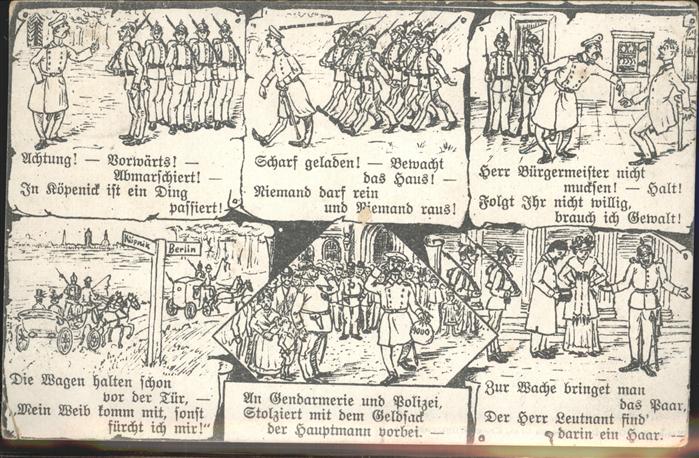 Achtung! — Vorwärts! —
Abmarschiert! —
In Köpenick ist ein Ding
passiert!
Scharf geladen! — Bewacht
das Haus! —
Niemand darf rein
und Niemand raus!
Herr Bürgermeister nicht
mucksen! — Halt!
Folgt Ihr nicht willig,
brauch ich Gewalt!
Köpnik
Berlin
Die Wagen halten schon
vor der Tür, —
„Mein Weib komm mit, sonst
fürcht ich mir!“
4000
An Gendarmerie und Polizei,
Stolziert mit dem Geldsack
der Hauptmann vorbei. —
Zur Wache bringet man
das Paar,
Der Herr Leutnant find'
darin ein Haar. —